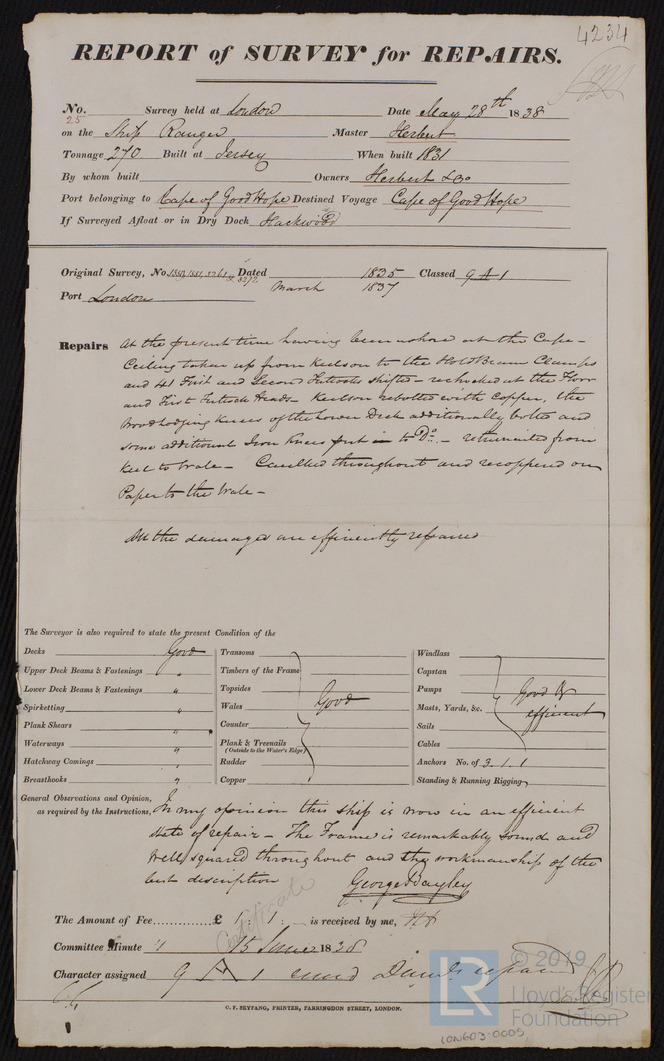 4234
REPORT of SURVEY for REPAIRS.
No. 25 Survey held at London Date May 28th 1838
on the Ship Ranger Master Herbert
Tonnage 270 Built at Jersey When built 1831
By whom built Owners Herbert & Co
Port belonging to Cape of Good Hope Destined Voyage Cape of Good Hope
If Surveyed Afloat or in Dry Dock
Original Survey, No. Dated 1835 Classed 9 A 1
Port London March 1837
Repairs At the present time having been ashore at the Cape -
Ceiling taken up from Keelson to the Hold Beam Clamps
and 41 First and Second Futtocks shifted - rechocked at the Floor
and First Futtock Heads - Keelson rebolted with Copper, the
Wood lodging Knees of the Lower Deck additionally bolted and
some additional Iron Knees put in to Do. - retreenailed from
Keel to Wale - Caulked throughout and recoppered on
Paper to the Wale -
All the damages are efficiently repaired
The Surveyor is also required to state the present Condition of the
Decks Good
Upper Deck Beams & Fastenings "
Lower Deck Beams & Fastenings "
Spirketting "
Plank Shears "
Waterways "
Hatchway Comings "
Breasthooks "
Transoms
Timbers of the Frame
Topsides
Wales Good
Counter
Plank & Treenails
(Outside to the Water's Edge)
Rudder
Copper
Windlass
Capstan
Pumps Good &
Masts, Yards, &c. efficient
Sails
Cables
Anchors No. of 3. 1. 1
Standing & Running Rigging
General Observations and Opinion, In my opinion this ship is now in an efficient
as required by the Instructions, state of repair - The Frame is remarkably sound and
well squared throughout and the workmanship of the
best description
George Bayley
Certificate
The Amount of Fee £ 1 : 1 : is received by me,
Committee Minute 15 June 1838
Character assigned 9 A 1
C. F. SEYFANG, PRINTER, FARRINGDON STREET, LONDON.
LR © 2019
Lloyd's Register
Foundation
LON603-0009